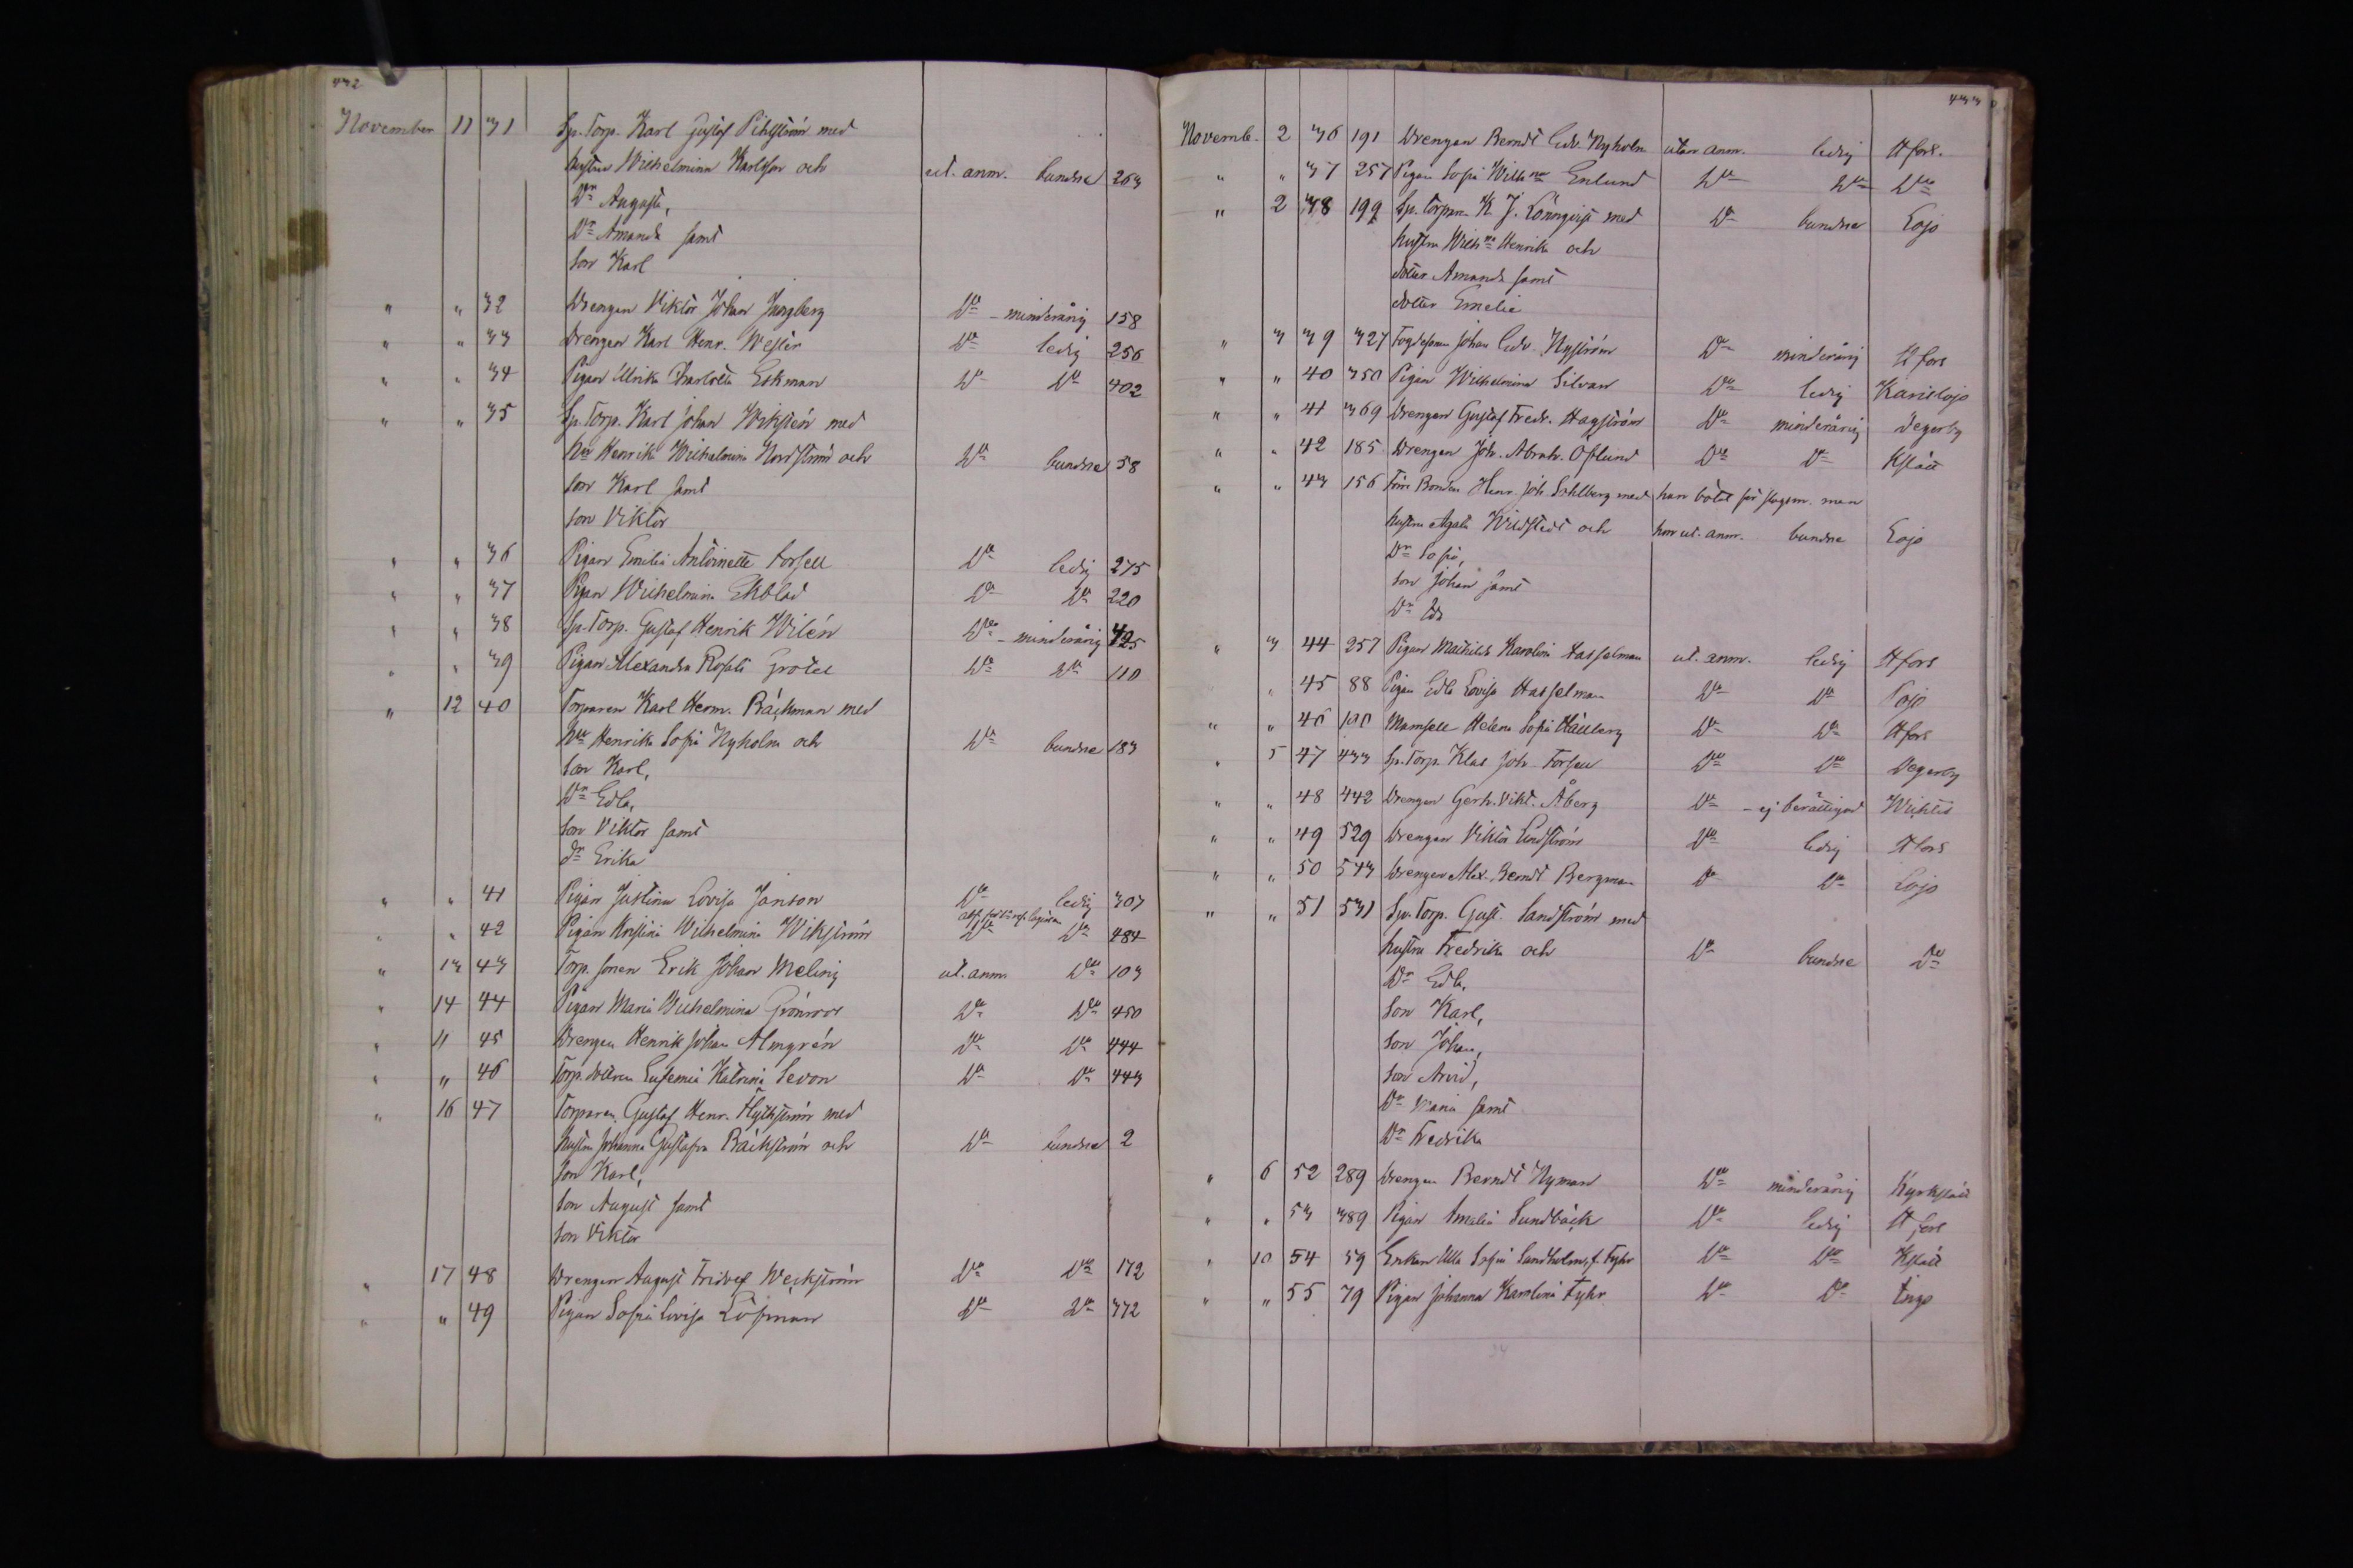 432
November 11 31 Sp. Torp. Karl Gustaf Pihlström med
hustru Wilhelmina Karlsson och ut. anm. bundne 263
Dr Augusta,
Dr Amanda samt
Son Karl
" " 32 Drengen Viktor Johan Ljungberg Do - minderårig 158
" " 33 Drengen Karl Henr. Wester Do ledig 256
" " 34 Pigan Ulrika Charlotta Eskman Do Do 402
" " 35 Sp. Torp. Karl Johan Wiksten med
hu Henrika Wilhelmina Nordström och Do bundne 58
Son Karl samt
Son Viktor
" " 36 Pigan Emilia Antoinette Forsell Do ledig 275
" " 37 Pigan Wilhelmina Ekblad Do Do 220
" " 38 Sp. Torp. Gustaf Henrik Wilén Do - minderårig 425
" " 39 Pigan Alexandra Rosalie Grotel Do Do 110
" 12 40 Torparen Karl Herm. Bäckman med
hu Henrika Sofia Nyholm och Do bundne 183
Son Karl,
Dr Edla,
Son Viktor samt
Dr Erika
" " 41 Pigan Justina Lovisa Janson Do ledig 307
" " 42 Pigan Kristina Wilhelmina Wikström Do Do 484
" 13 43 Torp. sonen Erik Johan Meling ut. anm. Do 103
" 14 44 Pigan Maria Wilhelmina Grönroos Do Do 450
" 11 45 Drengen Henrik Johan Almgrén Do Do 444
" " 46 Torp. dottren Eufemia Katrina Sevon Do Do 443
" 16 47 Torparen Gustaf Henr. Flythström med
hustru Johanna Gustafva Bäckström och Do bundne 2
Son Karl,
Son August samt
Son Viktor
" 17 48 Drengen August Fridolf Weckström Do Do 172
" " 49 Pigan Sofia Lovisa Löfman Do Do 372
433
Novemb. 2 36 191 Drengen Berndt Edv. Nyholm utan anm. ledig Hfors.
" " 37 257 Pigan Sofia Wilhna Enlund Do Do Do
" 2 38 192 Sp. torparen K. J. Lönnqvist med Do bundne Lojo
hustru Wilhna Henrika och
dotter Amanda samt
dotter Emelie
" 3 39 327 Fogdesonen Johan Edv. Nyström Do minderårig Hfors
" " 40 350 Pigan Wilhelmina Silvan Do ledig Karislojo
" " 41 369 Drengen Gustaf Fredr. Hagström Do minderårig Degerby
" " 42 185 Drengen Joh. Abrah. Öflund Do Do Kslätt
" " 43 156 Förre Bonden Henr. Joh. Sahlberg med han bötat för slagsm. men
hustru Agata Wildstedt och hon ut. anm. bundne Lojo
Dr Sofia,
Son Johan samt
Dr Ida
" 3 44 257 Pigan Mathilda Karolina Hasselman ut. anm. ledig Hfors
" 45 88 Pigan Edla Lovisa Hasselman Do Do Pojo
" " 46 100 Mamsell Helena Sofia Hällberg Do Do Hfors
" 5 47 433 Sp. Torp. Klas Joh. Forsell Do Do Degerby
" " 48 442 Drengen Gerh. Vikt. Åberg Do - ej berättigad Wichtis
" " 49 529 Drengen Viktor Lindström Do ledig Hfors
" " 50 543 Drengen Alex. Berndt Bergman Do Do Lojo
" " 51 531 Sp. Torp. Gust. Sandström med
hustru Fredrika och Do bundne Do
Dr Edla,
Son Karl,
Son Johan,
Son Arvid,
Dr Maria samt
Dr Fredrika
" 6 52 289 Drengen Berndt Nyman Do minderårig Kyrkslätt
" " 53 389 Pigan Amalia Sundbäck Do ledig Hfors
" 10 54 59 Enkan Ulla Sofia Sandholm, f. Fyhr Do Do Kslätt
" " 55 79 Pigan Johanna Karolina Fyhr Do Do Ingo